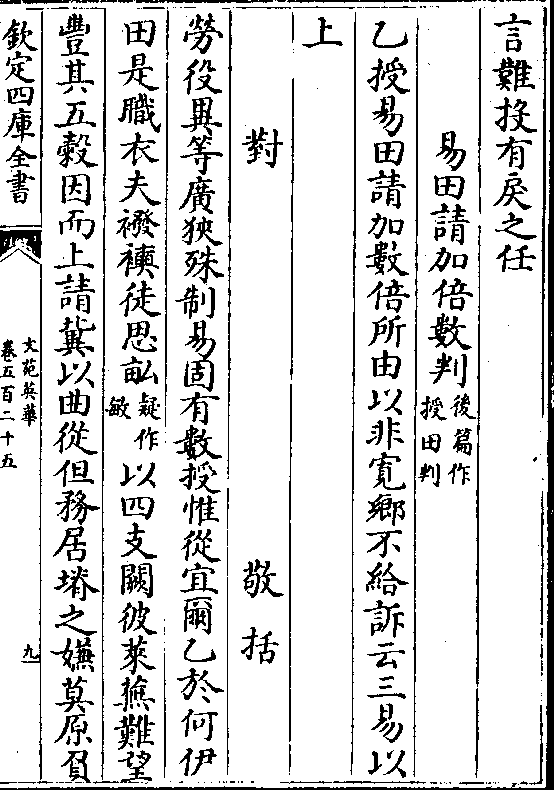 言難投有戾之任
易田請加倍數判後篇作授田判
乙授易田請加數倍所由以非寛鄉不給訴云三易以
上
對 敬括
勞役異等廣狹殊制易固有數授惟從宜爾乙於何伊
田是職衣夫襏襫徒思畝疑作敏以四支闕彼萊蕪難望
豐其五糓因而上請冀以曲從但務居塉之嫵莫原負
欽定四庫全書
文苑英華
卷五百二十五
九